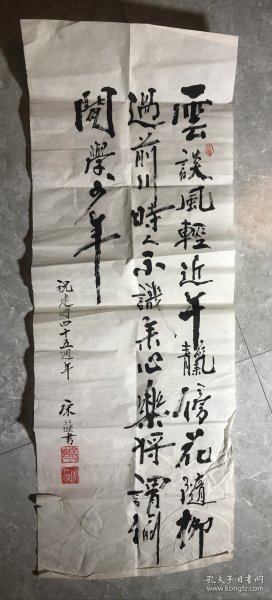 雲談風輕近午靝傍花隨柳
過前川時人不識余心樂將謂偷
閒學少年
祝建国四十五週年
书
孔夫子旧书网